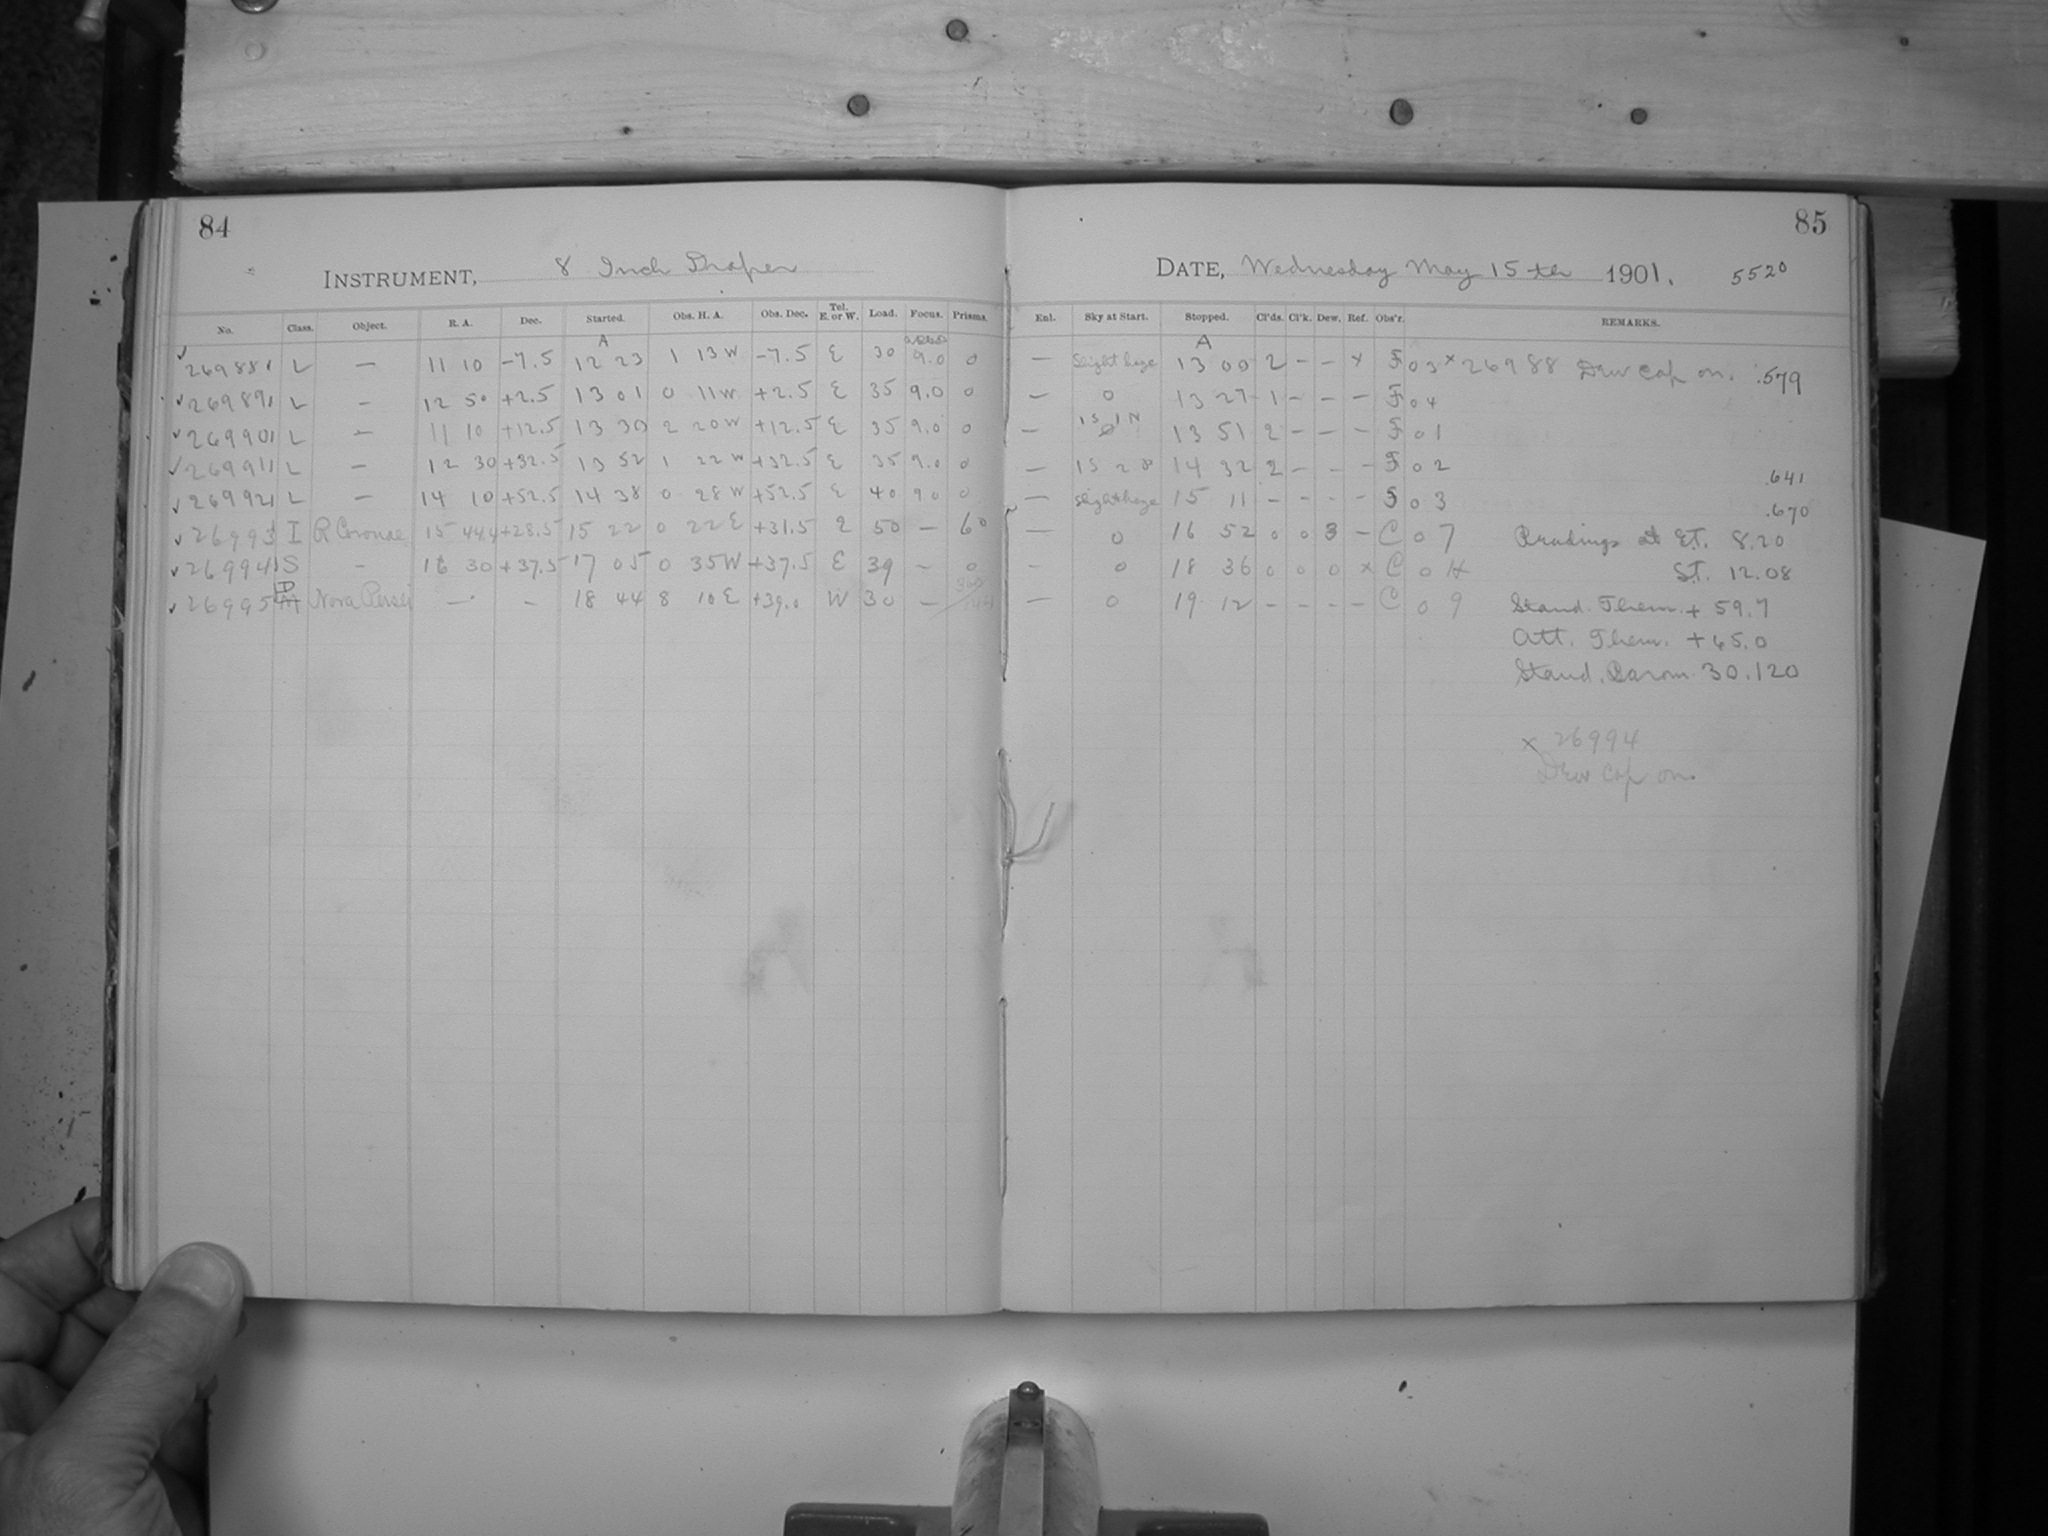 84
INSTRUMENT, 8 Inch Draper
No. Class. Object. R. A. Dec. Started. Obs. H. A. Obs. Dec. Tel. E. or W. Load. Focus. Prisms.
A
26988 L — 11 10 -7.5 12 23 1 13 W -7.5 E 30 9.0 0
26989 L — 12 50 +2.5 13 01 0 11 W +2.5 E 35 9.0 0
26990 L — 11 10 +12.5 13 30 2 20 W +12.5 E 35 9.0 0
26991 L — 12 30 +32.5 13 52 1 22 W +32.5 E 35 9.0 0
26992 L — 14 10 +52.5 14 38 0 28 W +52.5 E 40 9.0 0
26993 I R Coronae 15 44.4 +28.5 15 22 0 22 E +31.5 E 50 — 60
26994 S - 16 30 +37.5 17 05 0 35 W +37.5 E 39 - 0
26995 Nova Persei — - 18 44 8 10 E +39.0 W 30 —
85
DATE, Wednesday May 15 th 1901. 5520
Enl. Sky at Start. Stopped. Cl'ds. Cl'k. Dew. Ref. Obs'r. REMARKS.
A
— Slight haze 13 00 2 - - x F 03 x 26988 Dew cap on. .579
— 0 13 27 1 - - - F 04
— 1 S 1 N 13 51 2 - - - F 01
— 1 S 2 14 32 2 - - - F 02 .641
— Slight haze 15 11 - - - - F 03 .670
— 0 16 52 0 0 3 - C 07 Readings at E.T. 8.20
- 0 18 36 0 0 0 x C 0 S.T. 12.08
— 0 19 12 - - - - C 09 Stand. Therm. + 59.7
Att. Therm. + 65.0
Stand. Barom. 30.120
x 26994
Dew cap on.